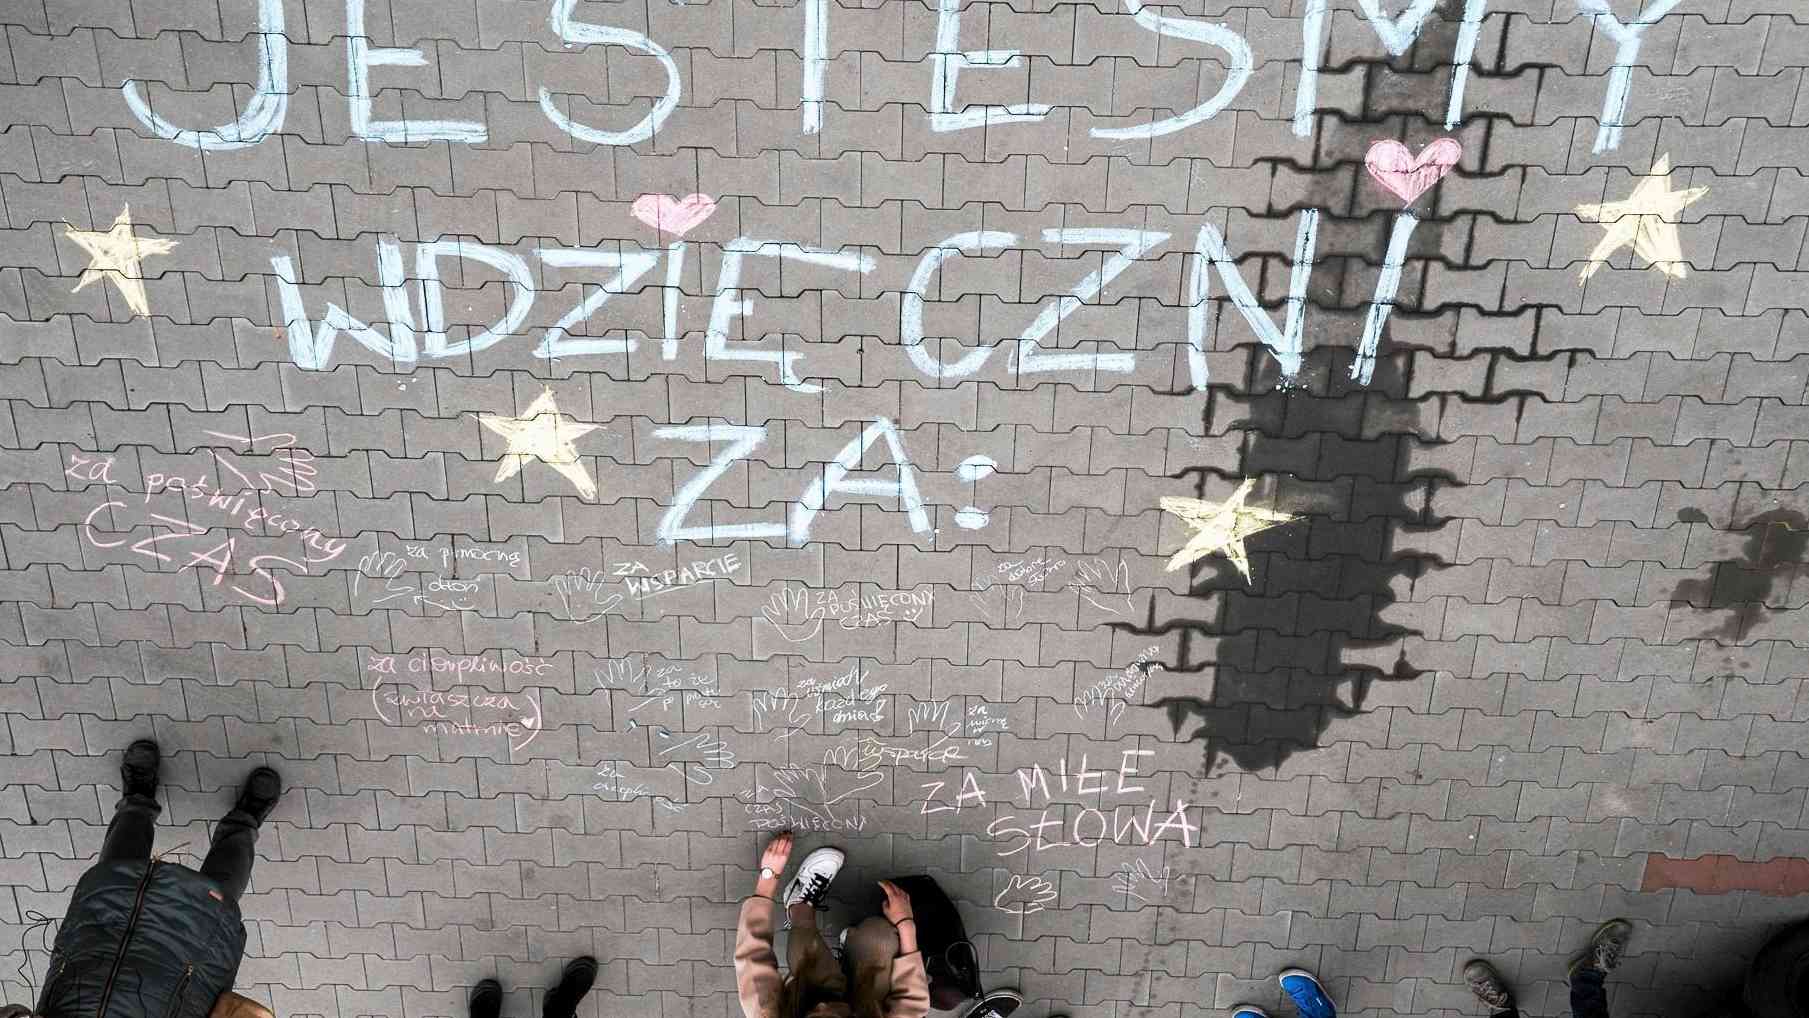 JESTEŚMY
WDZIĘCZNI
ZA:
za poświęcony
CZAS
za pomocną
dłoń
ZA
WSPARCIE
ZA
POŚWIĘCONY
CZAS
za
dobre
słowo
za cierpliwość
(zwłaszcza
na
matmie)
za
to że
za
uśmiech
każdego
dnia
za
wsparcie
za
CZAS
POŚWIĘCONY
ZA MIŁE
SŁOWA